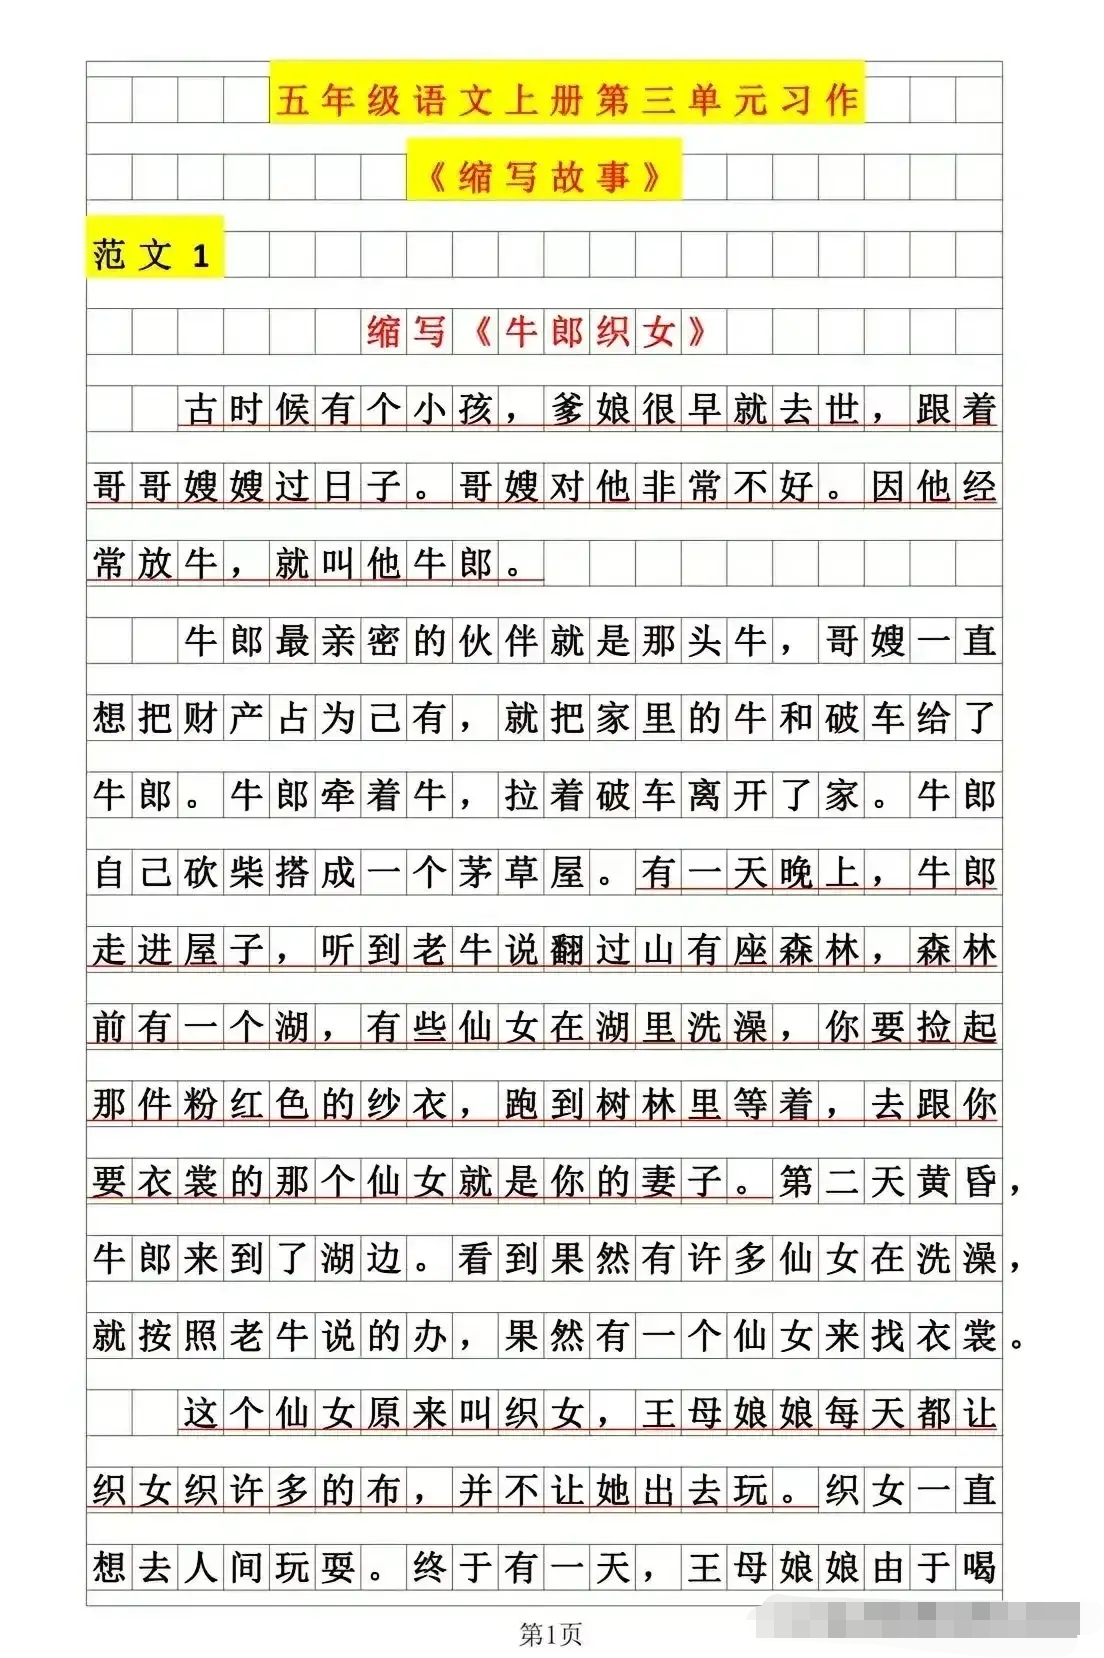 五年级语文上册第三单元习作
《缩写故事》
范文1
缩写《牛郎织女》
古时候有个小孩，爹娘很早就去世，跟着
哥哥嫂嫂过日子。哥嫂对他非常不好。因他经
常放牛，就叫他牛郎。
牛郎最亲密的伙伴就是那头牛，哥嫂一直
想把财产占为己有，就把家里的牛和破车给了
牛郎。牛郎牵着牛，拉着破车离开了家。牛郎
自己砍柴搭成一个茅草屋。有一天晚上，牛郎
走进屋子，听到老牛说翻过山有座森林，森林
前有一个湖，有些仙女在湖里洗澡，你要捡起
那件粉红色的纱衣，跑到树林里等着，去跟你
要衣裳的那个仙女就是你的妻子。第二天黄昏，
牛郎来到了湖边。看到果然有许多仙女在洗澡，
就按照老牛说的办，果然有一个仙女来找衣裳。
这个仙女原来叫织女，王母娘娘每天都让
织女织许多的布，并不让她出去玩。织女一直
想去人间玩耍。终于有一天，王母娘娘由于喝
第1页